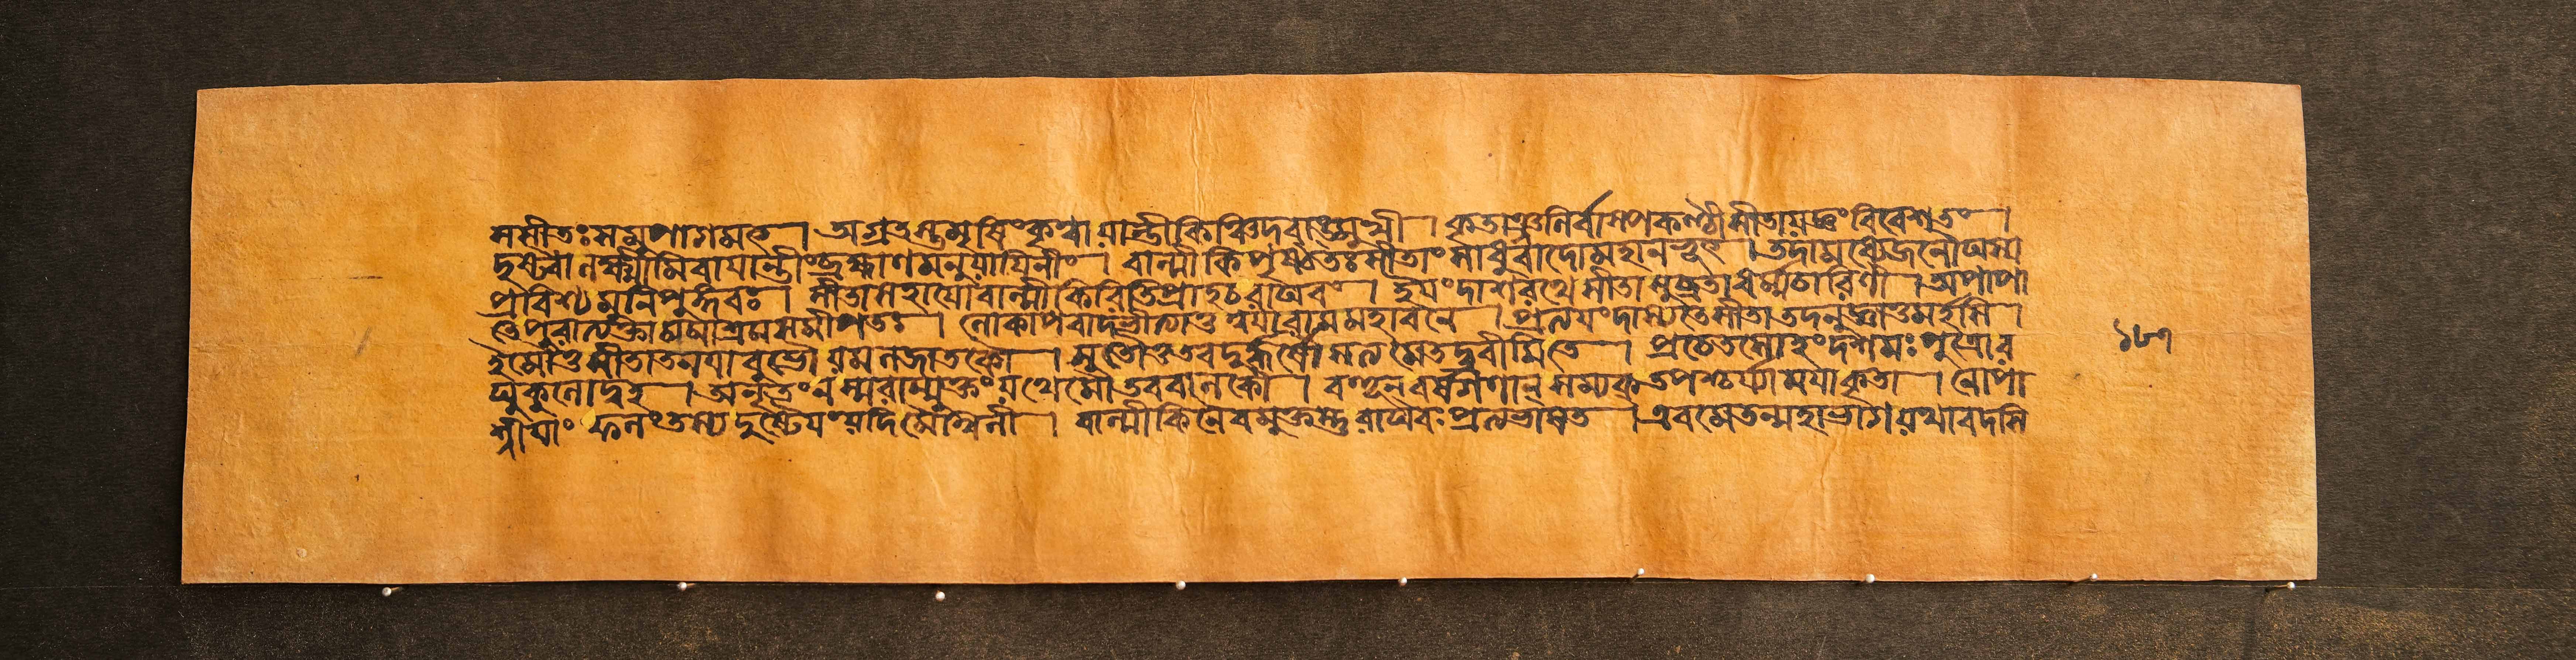 মসীতঃসমমুপাগমৎ । অগ্রতস্তমৃষিংকৃত্বাযান্তীকিঞ্চিদবাঙ্মুখী । কৃতাঞ্জলির্বাষ্পকণ্ঠীসীতাযজ্ঞংবিবেশতং ।
দৃষ্টবান্ শ্রিয়মিবাযান্তীংব্রহ্মাণমনুয়ায়িনীং । বাল্মীকিপৃষ্ঠতঃসীতাং সাধুবাদোমহানভূৎ । তদামধ্যেজনৌঘস্য
প্রবিশ্যমুনিপুঙ্গবঃ । সীতাসহাযোবাল্মীকিরিতিপ্রাহচরাঘবং । ইয়ংদাশরথেসীতাসুব্রতাধর্ম্মচারিণী । অপাপা
তেপুরাত্যক্তামমাশ্রমসমীপতঃ । লোকাপবাদভীত্যাতুত্বযারামমহাবনে । প্রত্যযংদাস্যতেসীতাতদনুজ্ঞাতুমর্হসি ।
ইমৌতুসীতাতনযাবুভৌযমলজাতকৌ । সুতৌতুতবদুর্দ্ধর্ষৌসত্যমেতদ্ব্রবীমিতে । প্রচেতসোহংদশমঃপুত্রোর
ঘুকুলোদ্বহ । অনৃতংনস্মরাম্যুক্তংযথেমৌতববালকৌ । বহূন্বর্ষগণান্ সম্যক্তপশ্চর্য্যামযাকৃতা । নোপা
শ্নীযাং ফলংতস্যাদুষ্টেযংযদিমৈথিলী । বাল্মীকিনৈবমুক্তস্তুরাঘবঃপ্রত্যভাষত । এবমেতন্মহাভাগযথাবদসি
১৮৭